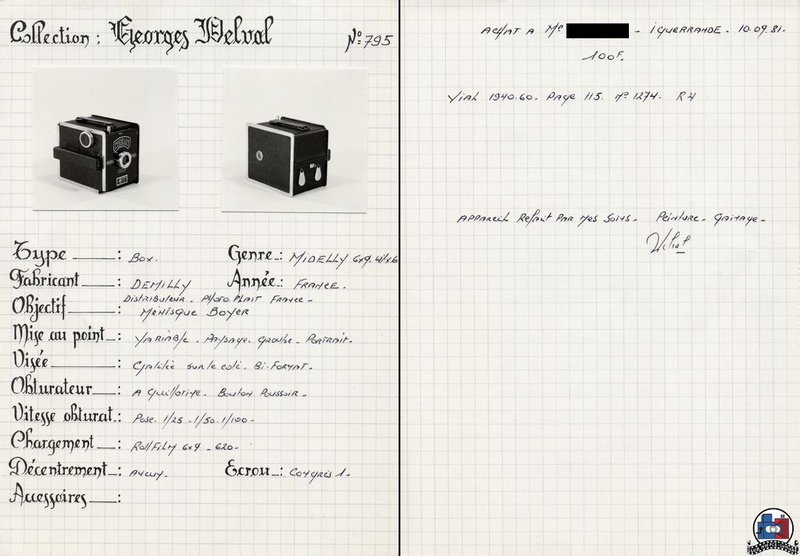 Collection : Georges Delval Nº 795
Type : Box. Genre : MIDELLY 6x9. 4½x6
Fabricant : DEMILLY Année : FRANCE.
Distributeur. Photo Plait France -
Objectif : Ménisque Boyer
Mise au point : Variable. Paysage. Groupe. Portrait.
Visée : Galilée sur le coté. Bi. Format.
Obturateur : A Guillotine. Bouton Poussoir.
Vitesse obturat. : Pose. 1/25 - 1/50. 1/100 -
Chargement : Roll Film 6x9 - 620 -
Décentrement : Aucun. Ecrou : Congrès 1 -
Accessoires :
ACHAT A Mr - IGUERRANDE - 10.09.81.
100F.
Vial 1940.60. Page 115. Nº 1274. R4
APPAREIL Refait PAR mes soins. Peinture - Gainage -
Delval